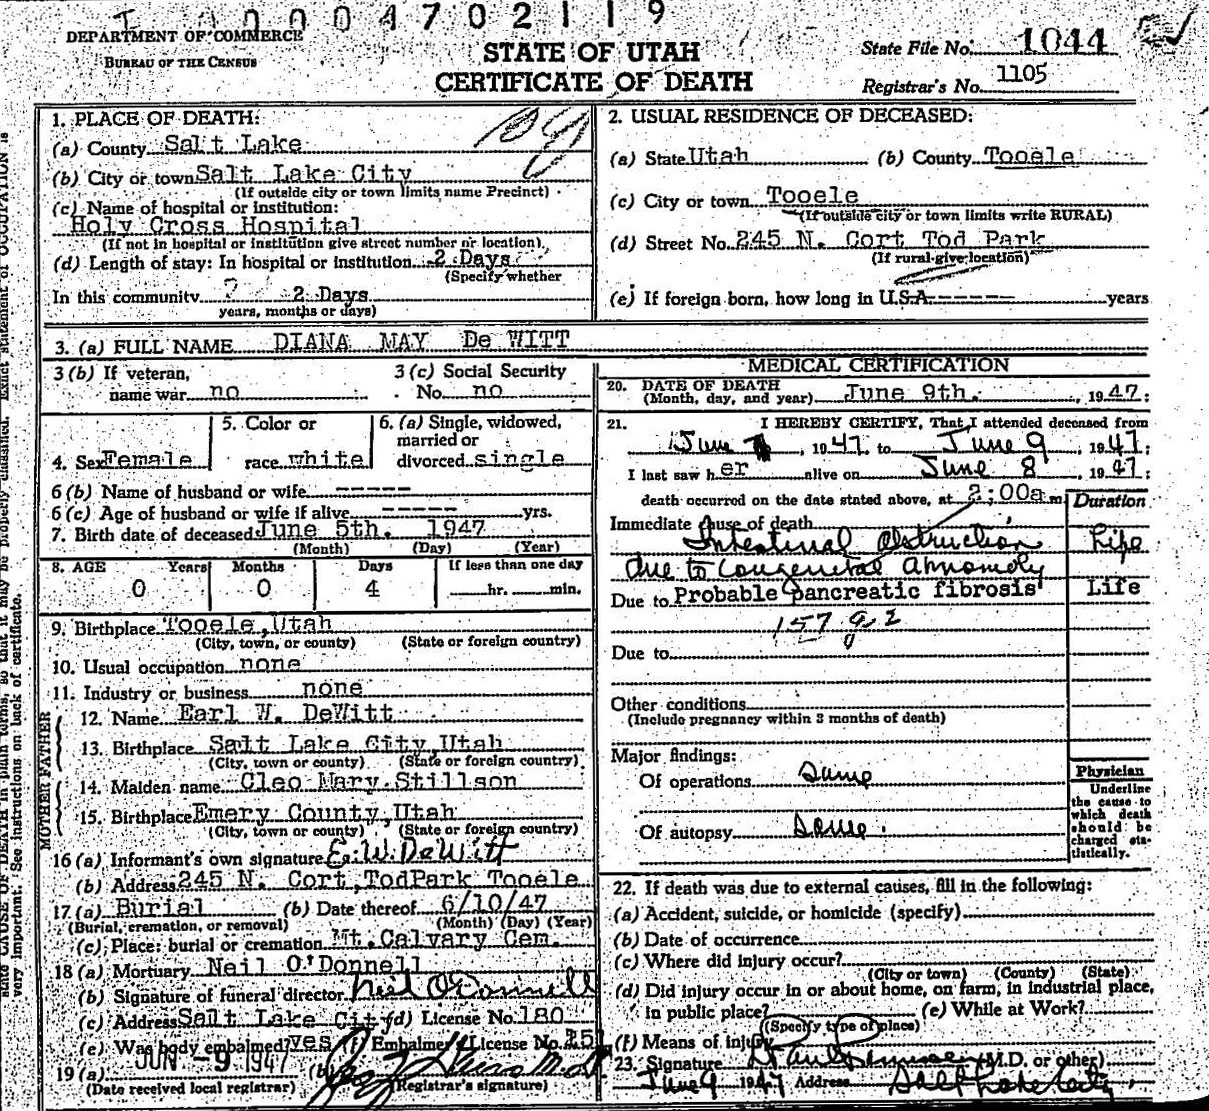 0004702119
DEPARTMENT OF COMMERCE
BUREAU OF THE CENSUS
STATE OF UTAH
CERTIFICATE OF DEATH
State File No. 1044
Registrar's No. 1105
1. PLACE OF DEATH:
(a) County Salt Lake
(b) City or town Salt Lake City
(If outside city or town limits name Precinct)
(c) Name of hospital or institution:
Holy Cross Hospital
(If not in hospital or institution give street number or location)
(d) Length of stay: In hospital or institution 2 Days
(Specify whether
In this community ? 2 Days
years, months or days)
2. USUAL RESIDENCE OF DECEASED:
(a) State Utah (b) County Tooele
(c) City or town Tooele
(If outside city or town limits write RURAL)
(d) Street No. 245 N. Cort Tod Park
(If rural give location)
(e) If foreign born, how long in U.S.A. ------ years
3. (a) FULL NAME DIANA MAY De WITT
3 (b) If veteran, name war no
3 (c) Social Security No. no
4. Sex Female
5. Color or race white
6. (a) Single, widowed, married or divorced single
6 (b) Name of husband or wife -----
6 (c) Age of husband or wife if alive ----- yrs.
7. Birth date of deceased June 5th. 1947
(Month) (Day) (Year)
8. AGE Years Months Days If less than one day
0 0 4 hr. min.
9. Birthplace Tooele, Utah
(City, town, or county) (State or foreign country)
10. Usual occupation none
11. Industry or business none
FATHER
12. Name Earl W. DeWitt
13. Birthplace Salt Lake City, Utah
(City, town or county) (State or foreign country)
MOTHER
14. Maiden name Cleo Mary Stillson
15. Birthplace Emery County, Utah
(City, town or county) (State or foreign country)
16 (a) Informant's own signature E. W. DeWitt
(b) Address 245 N. Cort, TodPark Tooele
17 (a) Burial (b) Date thereof 6/10/47
(Burial, cremation, or removal) (Month) (Day) (Year)
(c) Place: burial or cremation Mt. Calvary Cem.
18 (a) Mortuary Neil O'Donnell
(b) Signature of funeral director Neil O'Donnell
(c) Address Salt Lake City (d) License No. 180
(e) Was body embalmed? yes (f) Embalmer License No. 251
19 (a) JUN -9 1947 (b)
(Date received local registrar) (Registrar's signature)
MEDICAL CERTIFICATION
20. DATE OF DEATH
(Month, day, and year) June 9th. , 1947;
21. I HEREBY CERTIFY, That I attended deceased from
June 7, 1947, to June 9, 1947;
I last saw her alive on June 8, 1947;
death occurred on the date stated above, at 2:00a m.
Duration
Immediate cause of death
Intestinal Obstruction Life
due to Congenital Abnomoly
Due to Probable pancreatic fibrosis Life
157 g 2
Due to
Other conditions
(Include pregnancy within 3 months of death)
Major findings:
Of operations same
Of autopsy same.
Physician
Underline the cause to which death should be charged statistically.
22. If death was due to external causes, fill in the following:
(a) Accident, suicide, or homicide (specify)
(b) Date of occurrence
(c) Where did injury occur?
(City or town) (County) (State)
(d) Did injury occur in or about home, on farm, in industrial place, in public place? (e) While at Work?
(Specify type of place)
(f) Means of injury
23. Signature (M.D. or other)
June 9 1947 Address Salt Lake City.